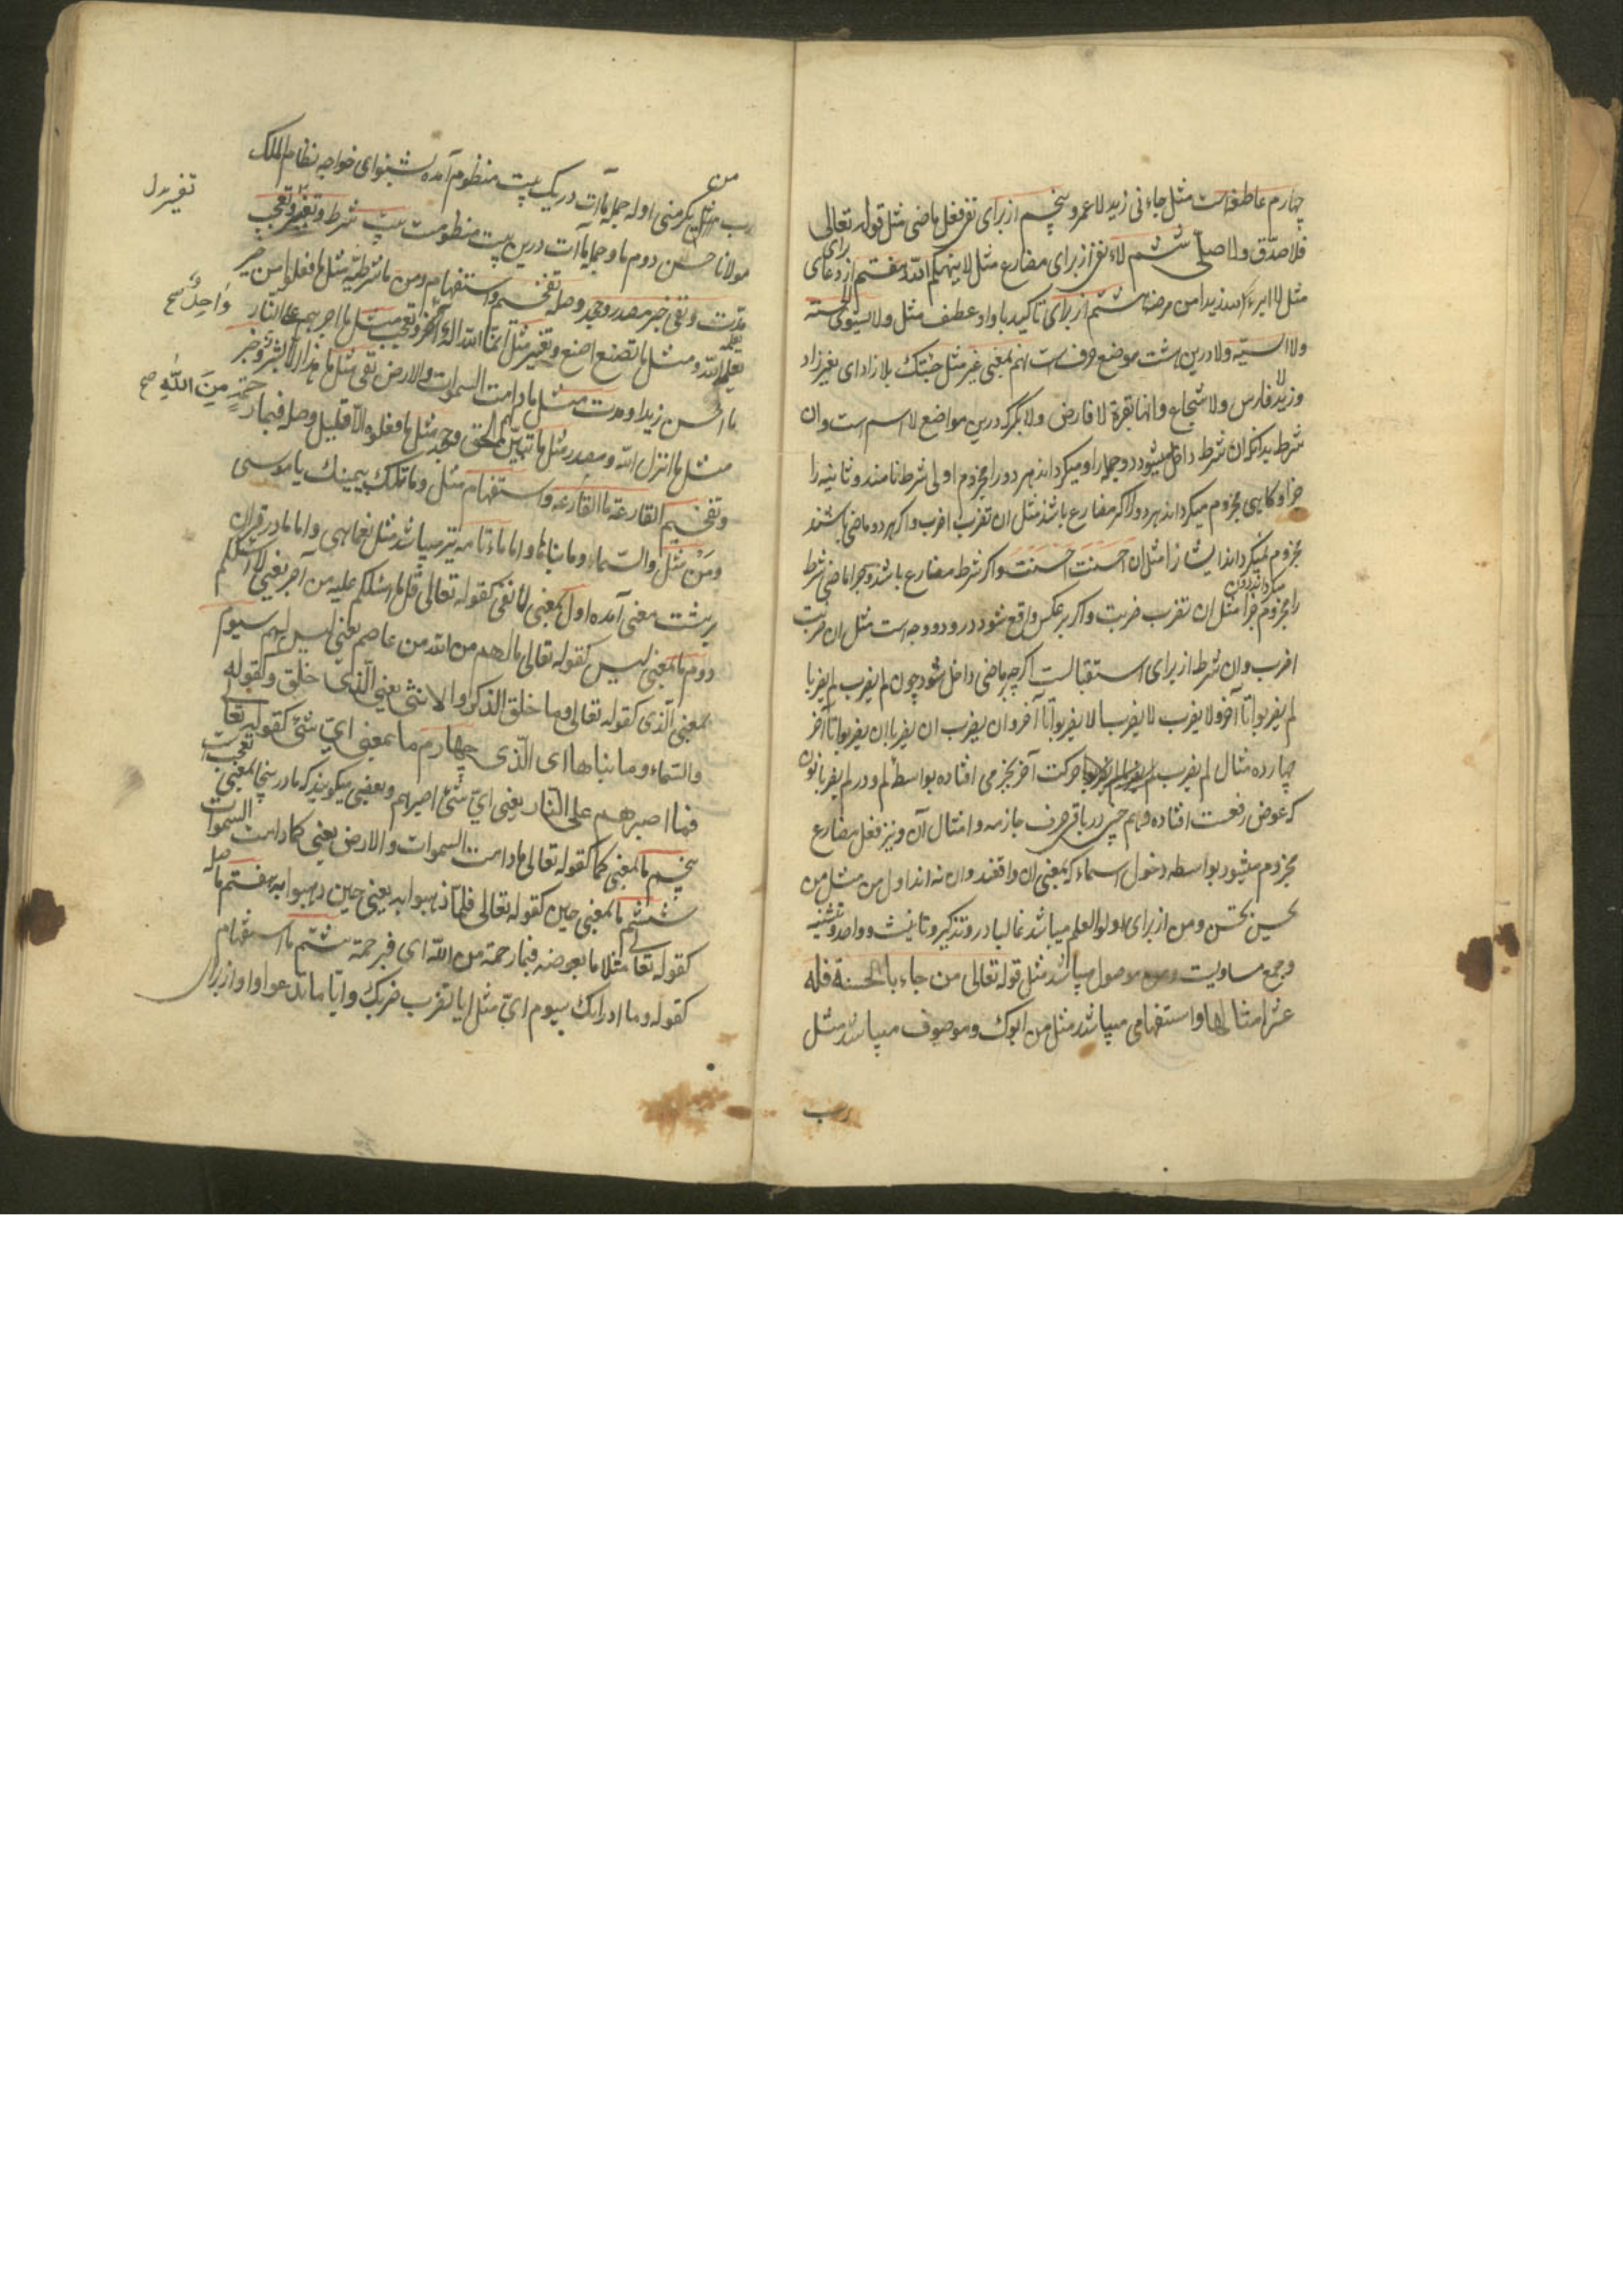 چهارم عاطفه است مثل جاءنی زید لا عمرو پنجم از برای نفی فعل ماضی مثل قوله تعالی
فلا صدّق ولا صلّی ششم لاء نفی از برای مضارع مثل لا ینهیکم الله هفتم از برای دعای
مثل لا ابرء الله زیدا من مرضه هشتم از برای تاکید با واو عطف مثل ولا یستوی الحسنة
ولا السیّئه ولا درین هشت موضع حرف است نهم بمعنی غیر مثل جئتک بلا زاد ای بغیر زاد
وزید لا فارس ولا شجاع وانها بقرة لا فارض ولا بکر که درین مواضع لا اسم است وان
شرط بدانکه ان شرط داخل میشود دو جمله را و میکرداند هر دو را مجزوم اولی شرط نامند و ثانیه را
جزا و کاهی مجزوم میکرداند هر دو را اکر مضارع باشد مثل ان تضرب اضرب واکر هر دو ماضی باشند
مجزوم نمیکرداند ایشانرا مثل ان احسنت احسنت واکر شرط مضارع باشد و جزا ماضی شرط
را مجزوم میکرداند دون جزا مثل ان تضرب ضربت واکر بر عکس واقع شود درو دو وجه است مثل ان ضربت
اضرب وان شرط از برای استقبالست اکرچه بر ماضی داخل شود چون لم یضرب لم یضربا
لم یضربوا تا آخر ولا یضرب لا یضربا لا یضربوا تا آخر وان یضرب ان یضربا ان یضربوا تا آخر
چهارده مثال لم یضرب حرکت آخر بجزمی افتاده بواسطه لم ودر لم یضربا نون
که عوض رفعست افتاده وهم چنین در باقی حرف جازمه و امثال آن ونیز فعل مضارع
مجزوم میشود بواسطه دخول اسماء که بمعنی ان واقعند وان نه اند اول من مثل من
یحسن یحسن ومن از برای اولوا العلم میباشد غالبا در و تذکیر و تانیث و واحد و تثنیه
وجمع مساویست ومن موصول میباشد مثل قوله تعالی من جاء بالحسنة فله
عشر امثالها واستفهامی میباشد مثل من ابوک وموصوف میباشد مثل
رب
رب من مثل یکرمنی اوله جمله ماآت در یک بیت منظوم آمده بشنو ای خواجه نظام الملک
مولانا حسن دوم ما وجمله ماآت درین بیت منظومست بیت شرط و تغیّر و تعجب
تغییر بدل
مدّت ونفی خبر مصدر و جحد وصله تفخیم واستفهام ومن ما شرطیه مثل ما تفعلوا من خیر
یعلمه الله ومثل ما تصنع اصنع وتغییر مثل انما الله اله
واحد صح
ما احسن زیدا ومدت مثل ما دامت السموات والارض نفی مثل ما هذا الا بشر وخبر
مثل ما انزل الله ومصدر مثل ما تبیّن لهم الحق وجحد مثل ما فعلوه الا قلیل وصله فبما رحمة من الله صح
وتفخیم القارعة ما القارعه واستفهام مثل وما تلک بیمینک یا موسی
ومن مثل والسماء وما بناها واما ماء تامه نیز میباشد مثل نعما هی واما ما در قران
بر هشت معنی آمده اول بمعنی لا نفی کقوله تعالی قل ما اسئلکم علیه من اجر یعنی لا اسئلکم
دوم ما بمعنی لیس کقوله تعالی ما لهم من الله من عاصم یعنی لیس لهم سیوم
بمعنی الّذی کقوله تعالی وما خلق الذکر والانثی یعنی الّذی خلق وکقوله تعالی
والسّماء وما بناها ای الّذی چهارم ما بمعنی ایّ شئ کقوله تعالی
فما اصبرهم علی النار یعنی ایّ شئ اصبرهم وبعضی میکویند که ما در اینجا بمعنی تعجب است
پنجم ما بمعنی کما کقوله تعالی ما دامت السموات والارض یعنی کما دامت السموات
ششم ما بمعنی حین کقوله تعالی فلما ذهبوا به یعنی حین ذهبوا به هفتم ما صله
کقوله تعالی مثلا ما بعوضه فبما رحمة من الله ای فبرحمة هشتم ما استفهام
کقوله وما ادراک سیوم ایّ مثل ایا تضرب ضربک وایّا ما تدعوا واو از برای